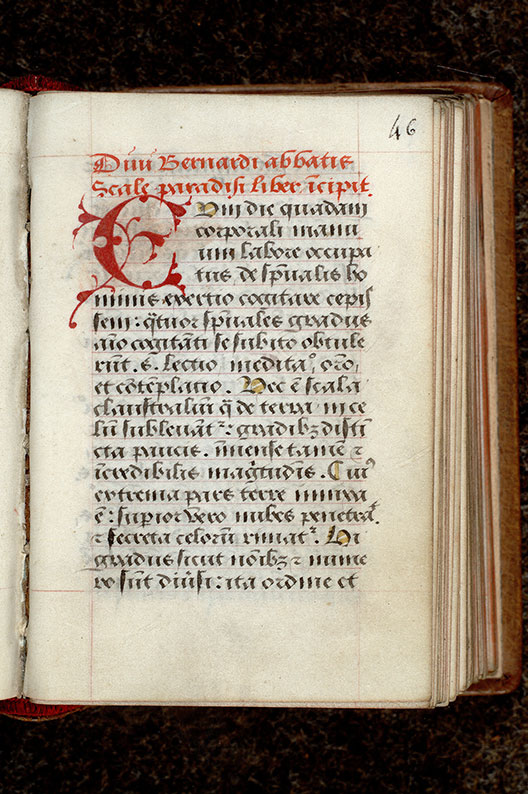 46
Diui Bernardi abbatis
Scale paradisi liber īcipit.
Cum die quadam
corporali manu
um labore occupa
tus de sp̄ualis ho
minis exertio cogitare cepis
sem: q̄tuor sp̄uales gradus
aīo cogitāti se subito obtule
rūt. s. lectio meditaᵒ, oro,
et cōtēplatio. Hec ē scala
claustraliū q̄ de terra in ce
lū subleuātꝛ: gradibꝫ disti
cta paucis. īmense tamē ⁊
īcredibilis magᷓtudīs. Cuiꝰ
extrema pars terre innixa
ē: supior vero nubes penetrat
⁊ secreta celorū rimatꝛ. Hi
gradus sicut noībꝫ ⁊ nume
ro sūt diūsi: ita ordine et